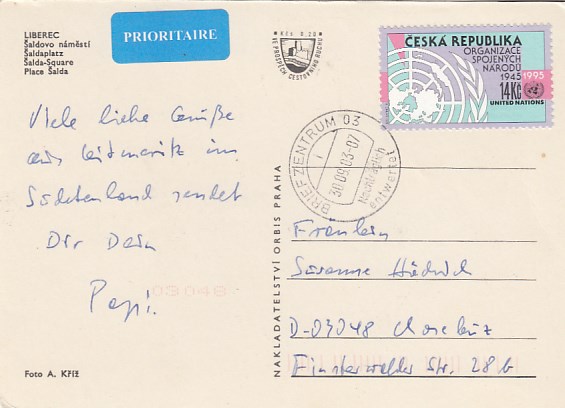 LIBEREC
Šaldovo náměstí
Šaldaplatz
Šalda-Square
Place Šalda
PRIORITAIRE
Kčs 0,20
VE PROSPĚCH CESTOVNÍHO RUCHU
ČESKÁ REPUBLIKA
ORGANIZACE
SPOJENÝCH
NÁRODŮ
1945 1995
14Kč
UNITED NATIONS
BRIEFZENTRUM 03
30.09.03-07
Nachträglich
entwertet
Viele liebe Grüße
aus Leitmeritz im
Sudetenland sendet
Dir Dein
Papi.
03048
Foto A. Kříž
NAKLADATELSTVÍ ORBIS PRAHA
Fräulein
Susanne
D-03048 Chosebuz
Finsterwalder Str. 28b